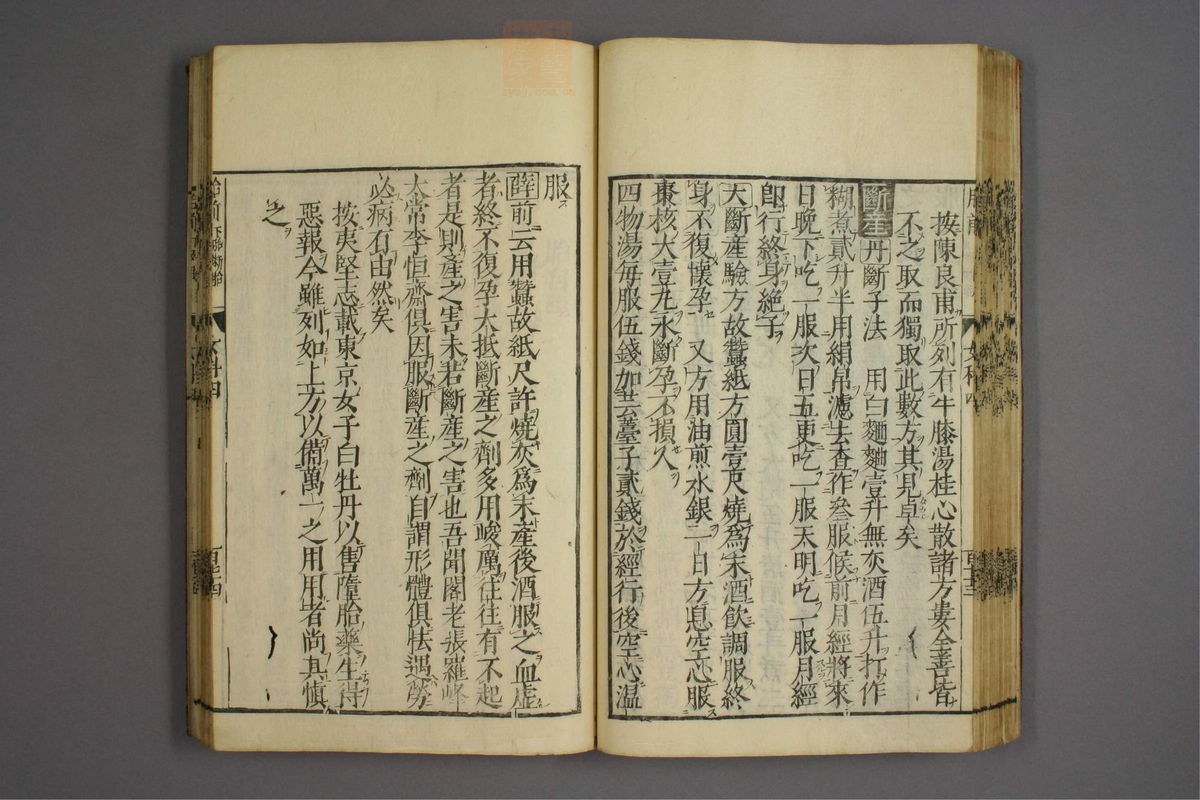 胎前
女科四
百十三
按陳良甫所列有牛膝湯桂心散諸方婁全善皆
不之取而獨取此數方其見卓矣
斷產丹斷子法 用白麵麯壹升無灰酒伍升打作
糊煮貳升半用絹帛濾去查作叁服候前月經將來
日晚下吃一服次日五更吃一服天明吃一服月經
卽行終身絶子
大斷產驗方故蠶紙方圓壹尺燒爲末酒飲調服終
身不復懷孕 又方用油煎水銀一日方息空心服
棗核大壹丸永斷孕不損人
四物湯每服伍錢加芸薹子貳錢於經行後空心溫
服
薛前云用蠶故紙尺許燒灰爲末產後酒服之血虛
者終不復孕大抵斷產之劑多用峻厲往往有不起
者是則產之害未若斷產之害也吾聞閣老張羅峰
太常李恒齋俱因服斷產之劑自謂形體俱怯遇勞
必病有由然矣
按夷堅志載東京女子白牡丹以售墮胎藥生得
惡報今雖列如上方以備萬一之用用者尚其愼
之
胎前
女科四